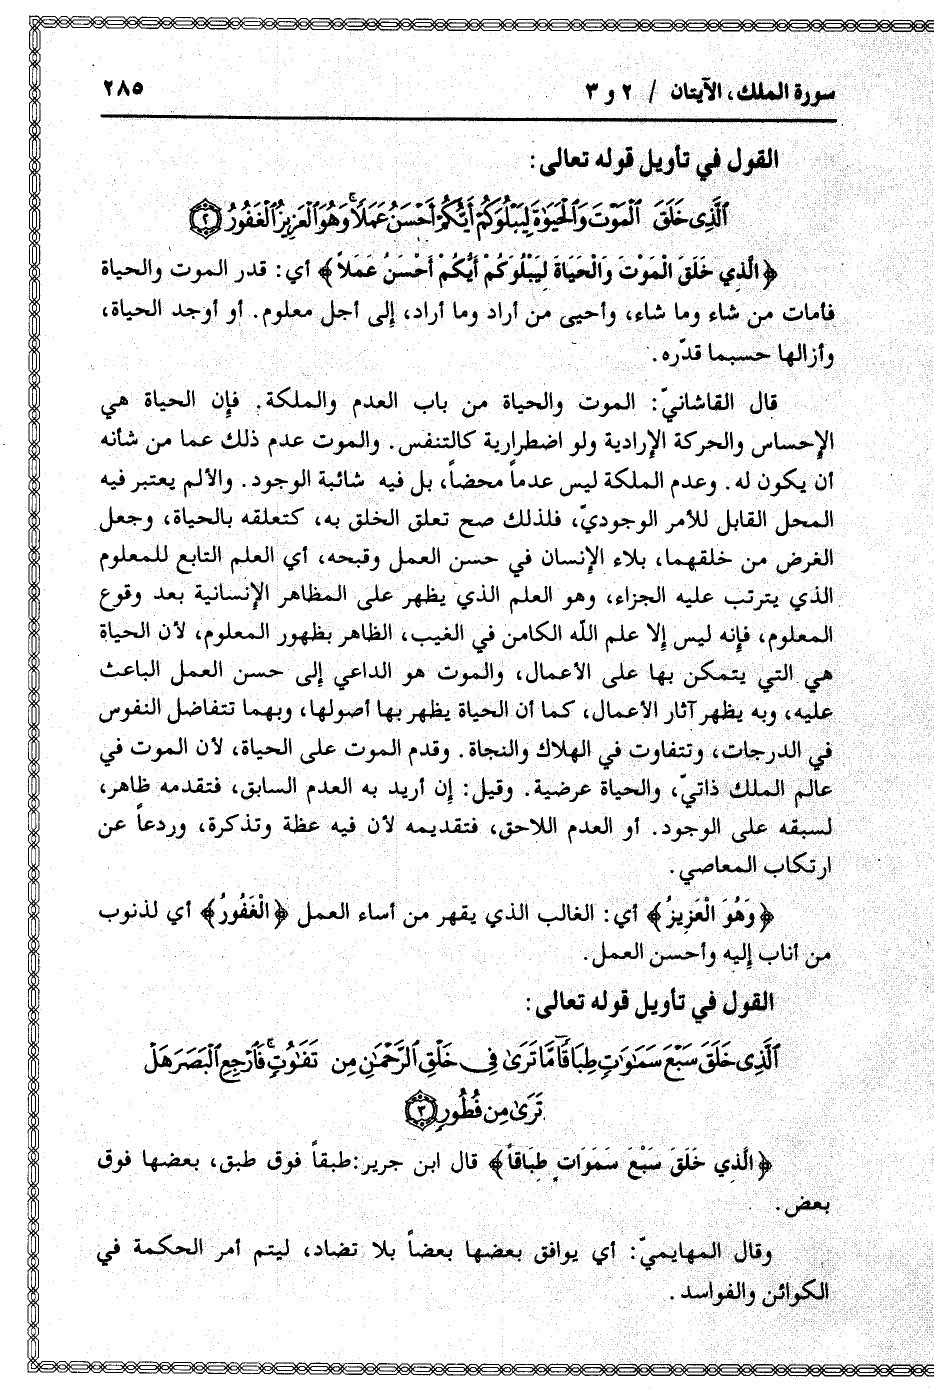 سورة الملك، الآيتان / ٢ و ٣
٢٨٥
القول في تأويل قوله تعالى:
ٱلَّذِى خَلَقَ ٱلْمَوْتَ وَٱلْحَيَوٰةَ لِيَبْلُوَكُمْ أَيُّكُمْ أَحْسَنُ عَمَلًا ۚ وَهُوَ ٱلْعَزِيزُ ٱلْغَفُورُ ٢
﴿الَّذِي خَلَقَ الْمَوْتَ وَالْحَيَاةَ لِيَبْلُوَكُمْ أَيُّكُمْ أَحْسَنُ عَمَلاً﴾ أي: قدر الموت والحياة
فأمات من شاء وما شاء، وأحيى من أراد وما أراد، إلى أجل معلوم. أو أوجد الحياة،
وأزالها حسبما قدّره.
قال القاشانيّ: الموت والحياة من باب العدم والملكة. فإن الحياة هي
الإحساس والحركة الإرادية ولو اضطرارية كالتنفس. والموت عدم ذلك عما من شانه
أن يكون له. وعدم الملكة ليس عدماً محضاً، بل فيه شائبة الوجود. والألم يعتبر فيه
المحل القابل للأمر الوجوديّ، فلذلك صح تعلق الخلق به، كتعلقه بالحياة، وجعل
الغرض من خلقهما، بلاء الإنسان في حسن العمل وقبحه، أي العلم التابع للمعلوم
الذي يترتب عليه الجزاء، وهو العلم الذي يظهر على المظاهر الإنسانية بعد وقوع
المعلوم، فإنه ليس إلا علم الله الكامن في الغيب، الظاهر بظهور المعلوم، لأن الحياة
هي التي يتمكن بها على الأعمال، والموت هو الداعي إلى حسن العمل الباعث
عليه، وبه يظهر آثار الأعمال، كما أن الحياة يظهر بها أصولها، وبهما تتفاضل النفوس
في الدرجات، وتتفاوت في الهلاك والنجاة. وقدم الموت على الحياة، لأن الموت في
عالم الملك ذاتيّ، والحياة عرضية. وقيل: إن أريد به العدم السابق، فتقدمه ظاهر،
لسبقه على الوجود. أو العدم اللاحق، فتقديمه لأن فيه عظة وتذكرة، وردعاً عن
ارتكاب المعاصي.
﴿وَهُوَ الْعَزِيزُ﴾ أي: الغالب الذي يقهر من أساء العمل ﴿الْغَفُورُ﴾ أي لذنوب
من أناب إليه وأحسن العمل.
القول في تأويل قوله تعالى:
ٱلَّذِى خَلَقَ سَبْعَ سَمَٰوَٰتٍ طِبَاقًا ۖ مَّا تَرَىٰ فِى خَلْقِ ٱلرَّحْمَٰنِ مِن تَفَٰوُتٍ ۖ فَٱرْجِعِ ٱلْبَصَرَ هَلْ
تَرَىٰ مِن فُطُورٍ ٣
﴿الَّذِي خَلَقَ سَبْعَ سَمَوَاتٍ طِبَاقاً﴾ قال ابن جرير:طبقاً فوق طبق، بعضها فوق
بعض.
وقال المهايميّ: أي يوافق بعضها بعضاً بلا تضاد، ليتم أمر الحكمة في
الكوائن والفواسد.